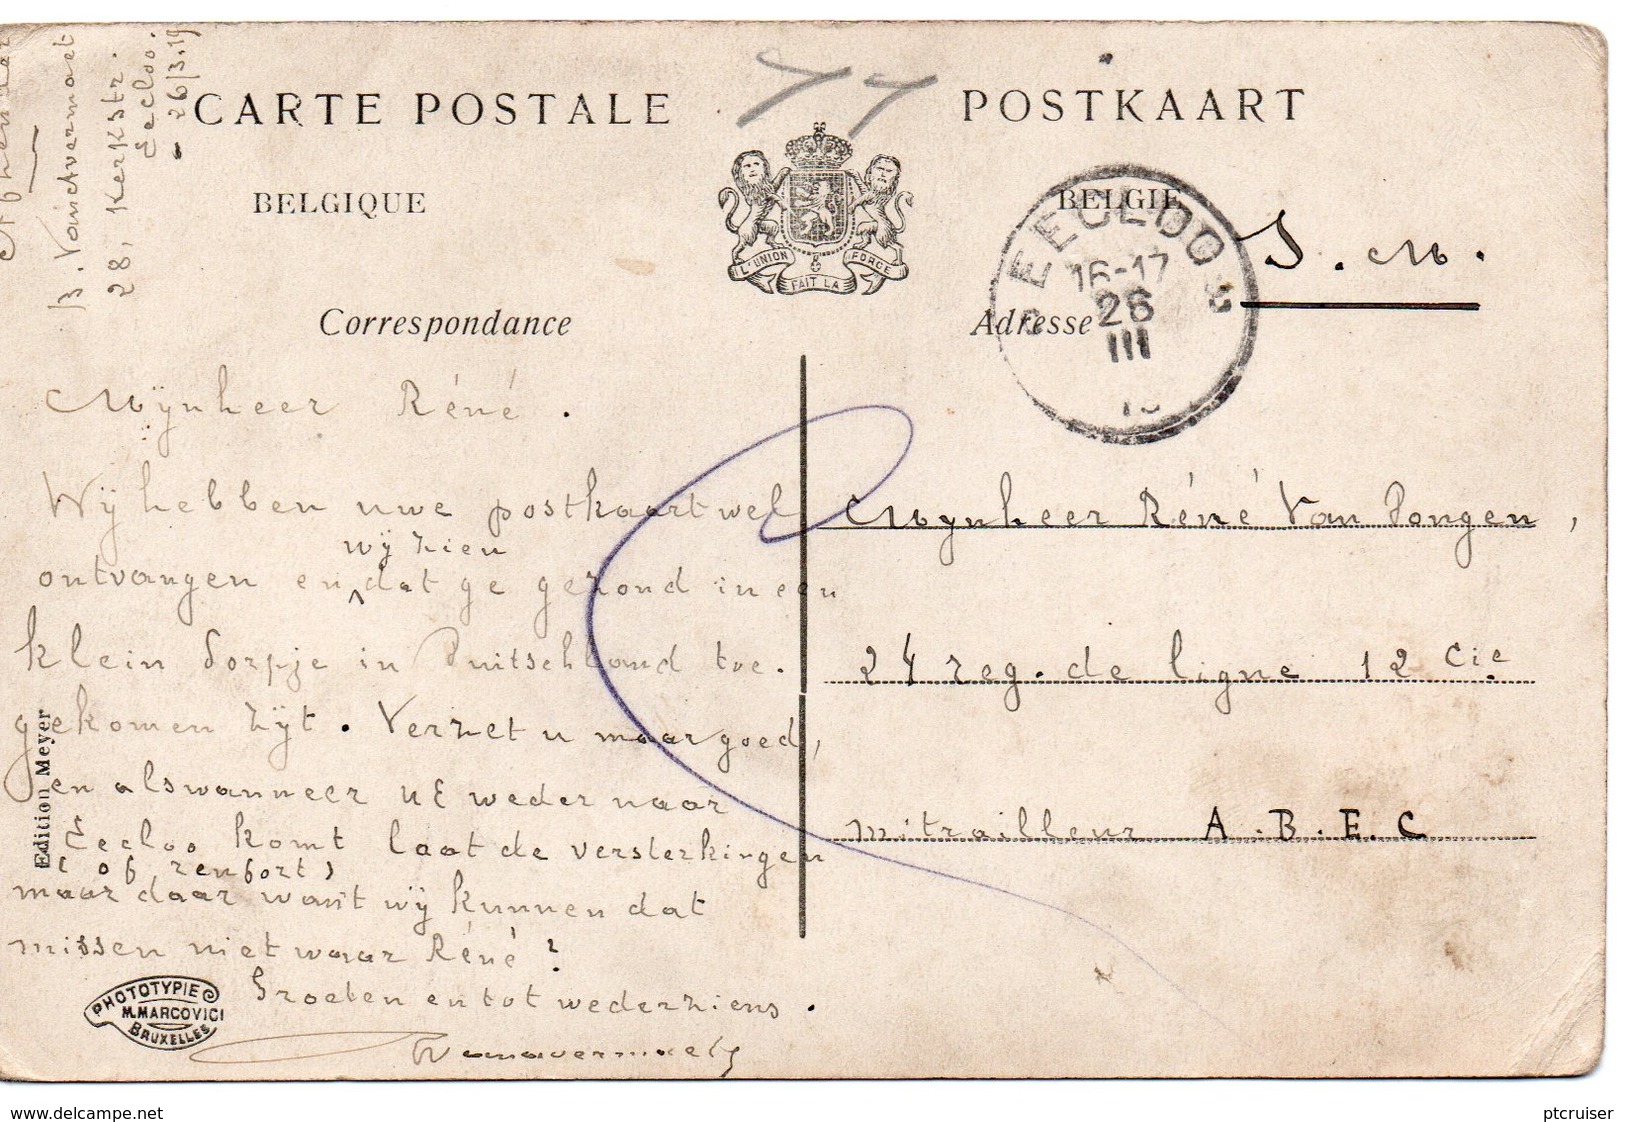 Afzender
B. Vandvermaet
28, Kerkstr.
Eecloo.
26/3.19
CARTE POSTALE
POSTKAART
BELGIQUE
BELGIË
L'UNION FAIT LA FORCE
EECLOO
16-17
26
III
S. M.
Correspondance
Adresse
Mÿnheer Réné.
Wÿ hebben uwe postkaart wel
wÿ zien
ontvangen en dat ge gezond in een
klein dorpje in Duitschland toe.
gekomen zÿt. Verzet u maar goed,
en alswanneer UE weder naar
Eecloo komt laat de versterkingen
(of renforts)
maar daar want wÿ kunnen dat
missen niet waar Réné?
Groeten en tot wederziens.
Mynheer Réné Van Dongen,
24 reg. de ligne 12 Cie
mitrailleur A.B.E.C
Edition Meyer
PHOTOTYPIE
M.MARCOVICI
BRUXELLES
www.delcampe.net
ptcruiser